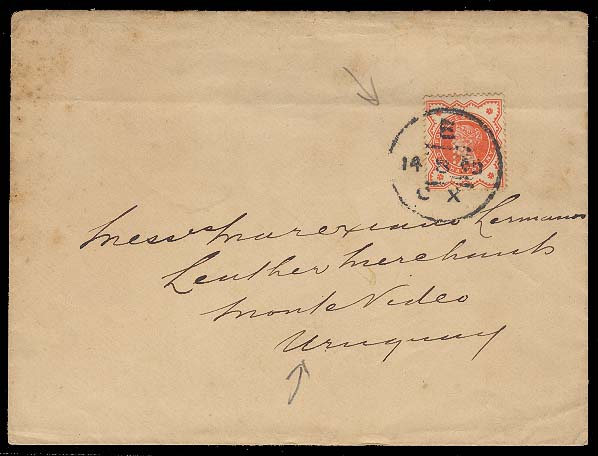 E
14 8 90
C X
Mess.rs Marexiano Hermanos
Leather Merchants
Monte Video
Uruguay